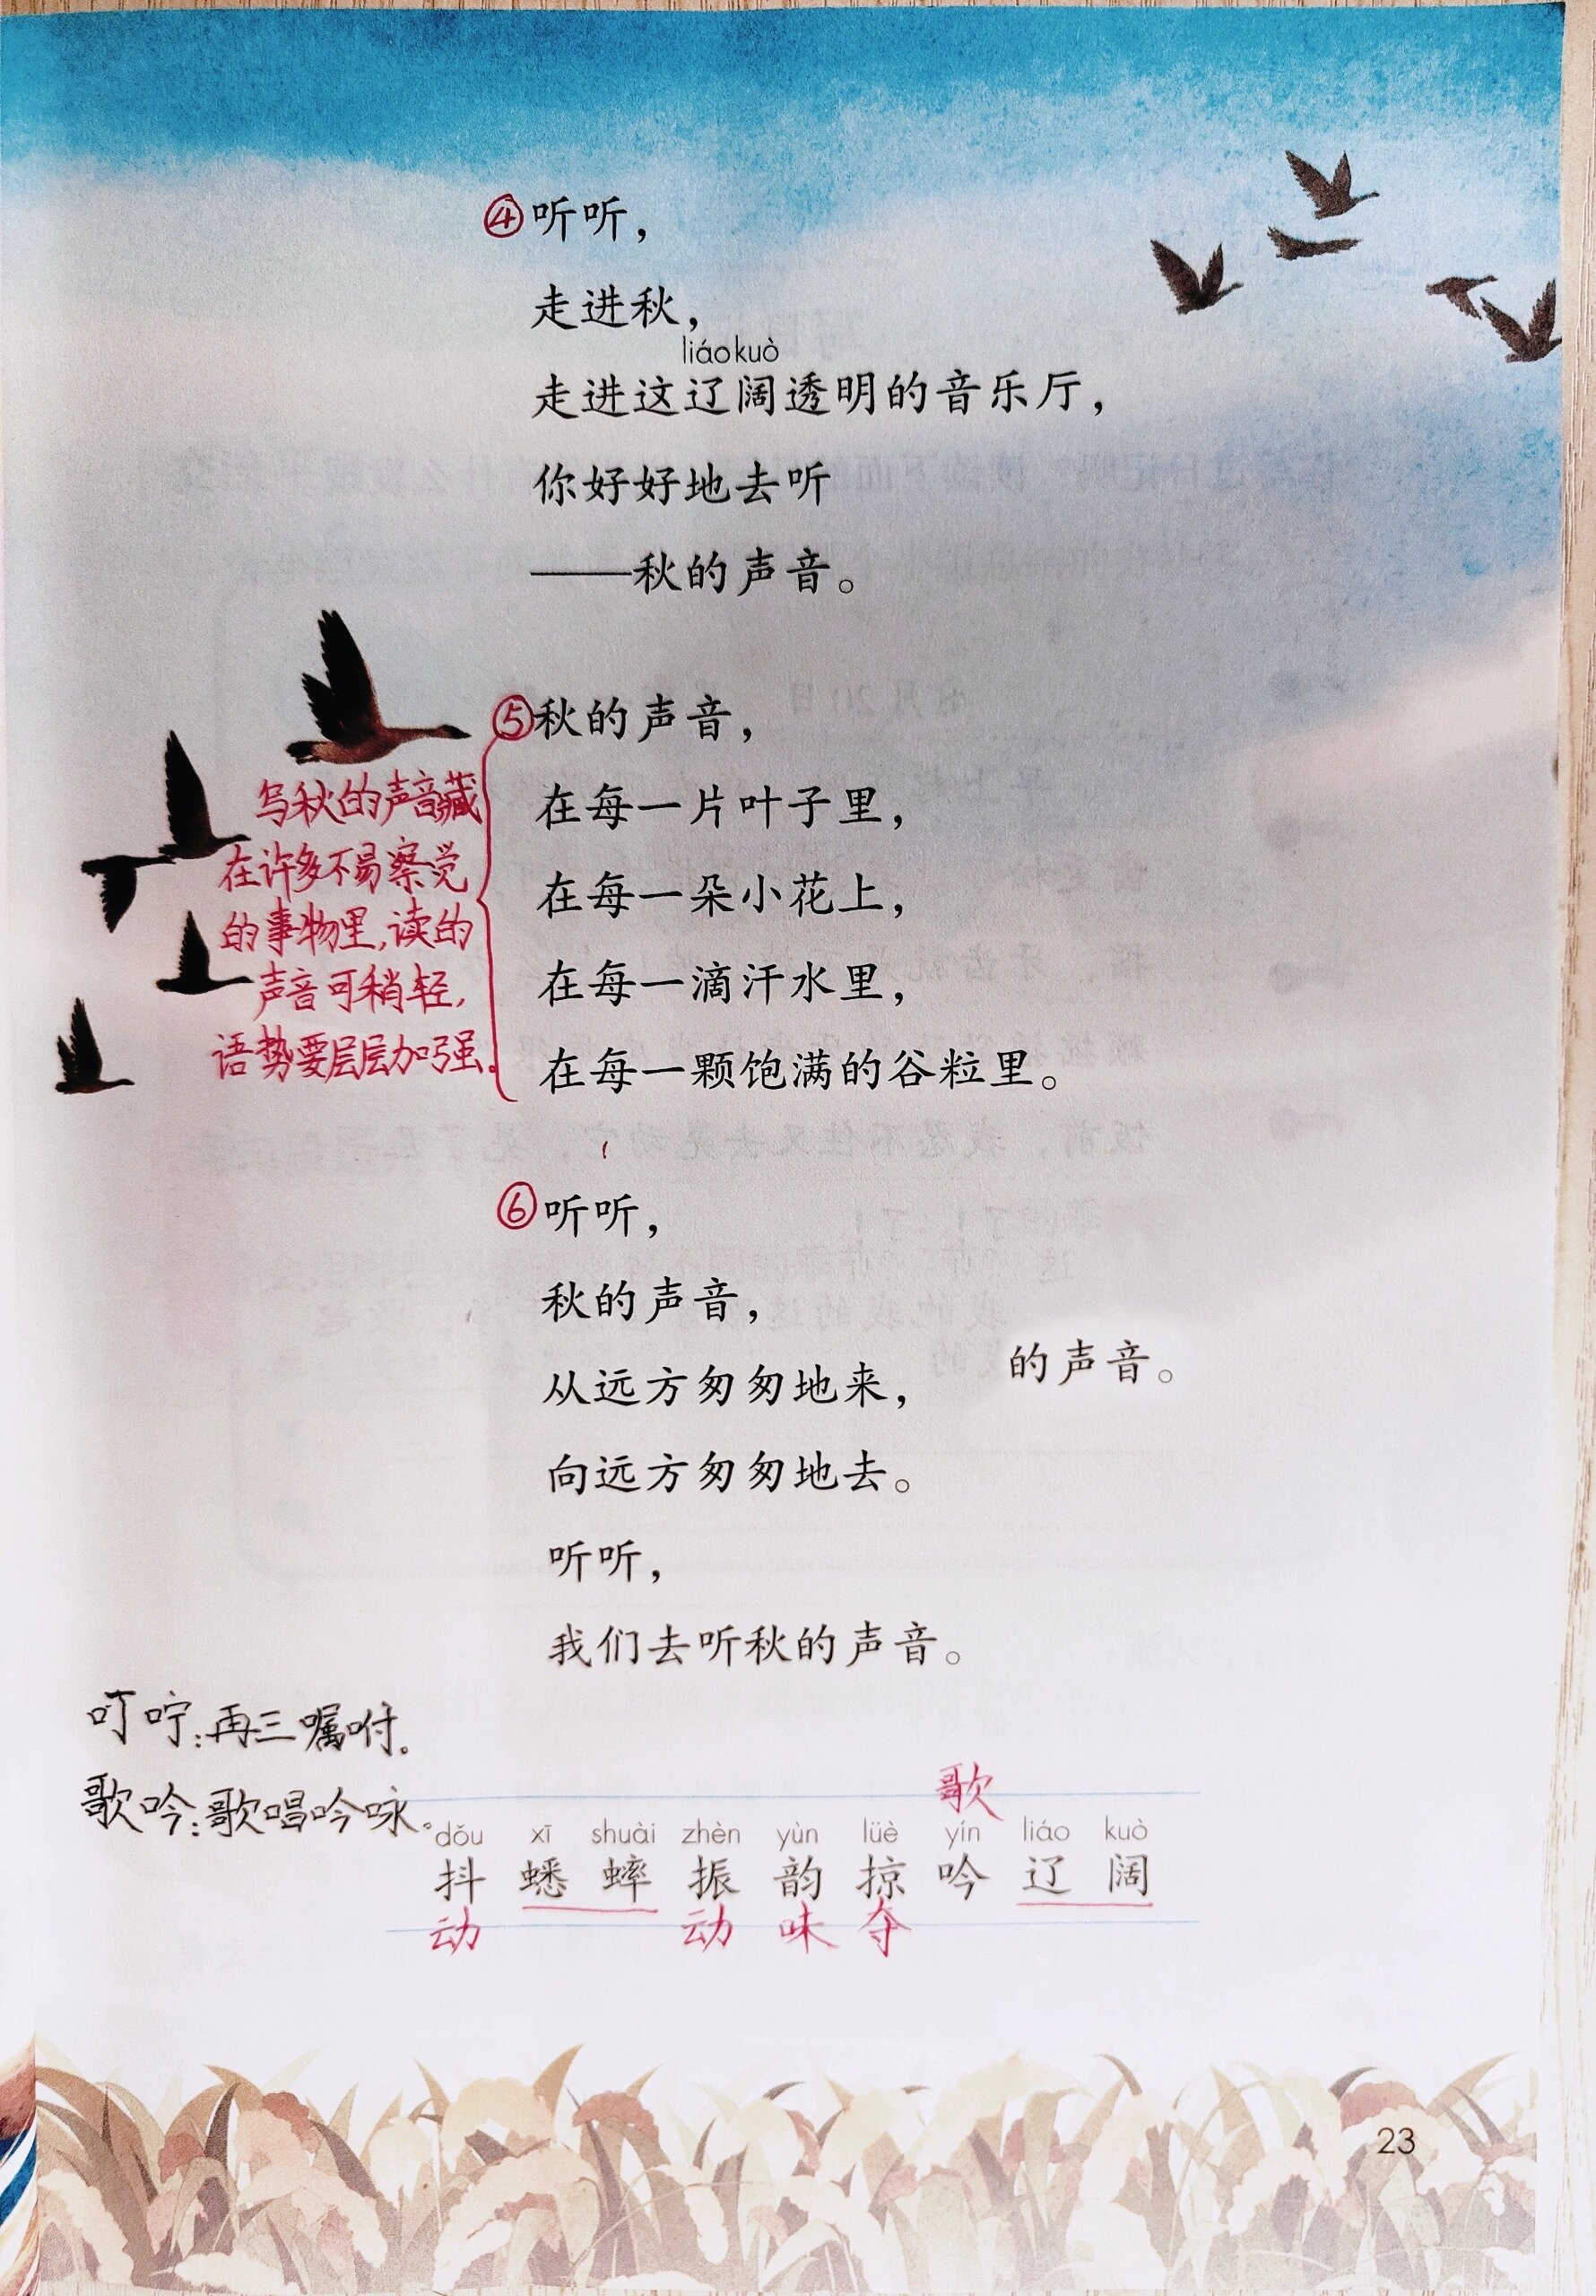 ④听听，
走进秋，
liáo kuò
走进这辽阔透明的音乐厅，
你好好地去听
——秋的声音。
⑤秋的声音，
在每一片叶子里，
在每一朵小花上，
在每一滴汗水里，
在每一颗饱满的谷粒里。
写秋的声音藏
在许多不易察觉
的事物里，读的
声音可稍轻，
语势要层层加强。
⑥听听，
秋的声音，
从远方匆匆地来，
的声音。
向远方匆匆地去。
听听，
我们去听秋的声音。
叮咛：再三嘱咐。
歌吟：歌唱吟咏。
歌
dǒu xī shuài zhèn yùn lüè yín liáo kuò
抖 蟋 蟀 振 韵 掠 吟 辽 阔
动 动 味 夺
23